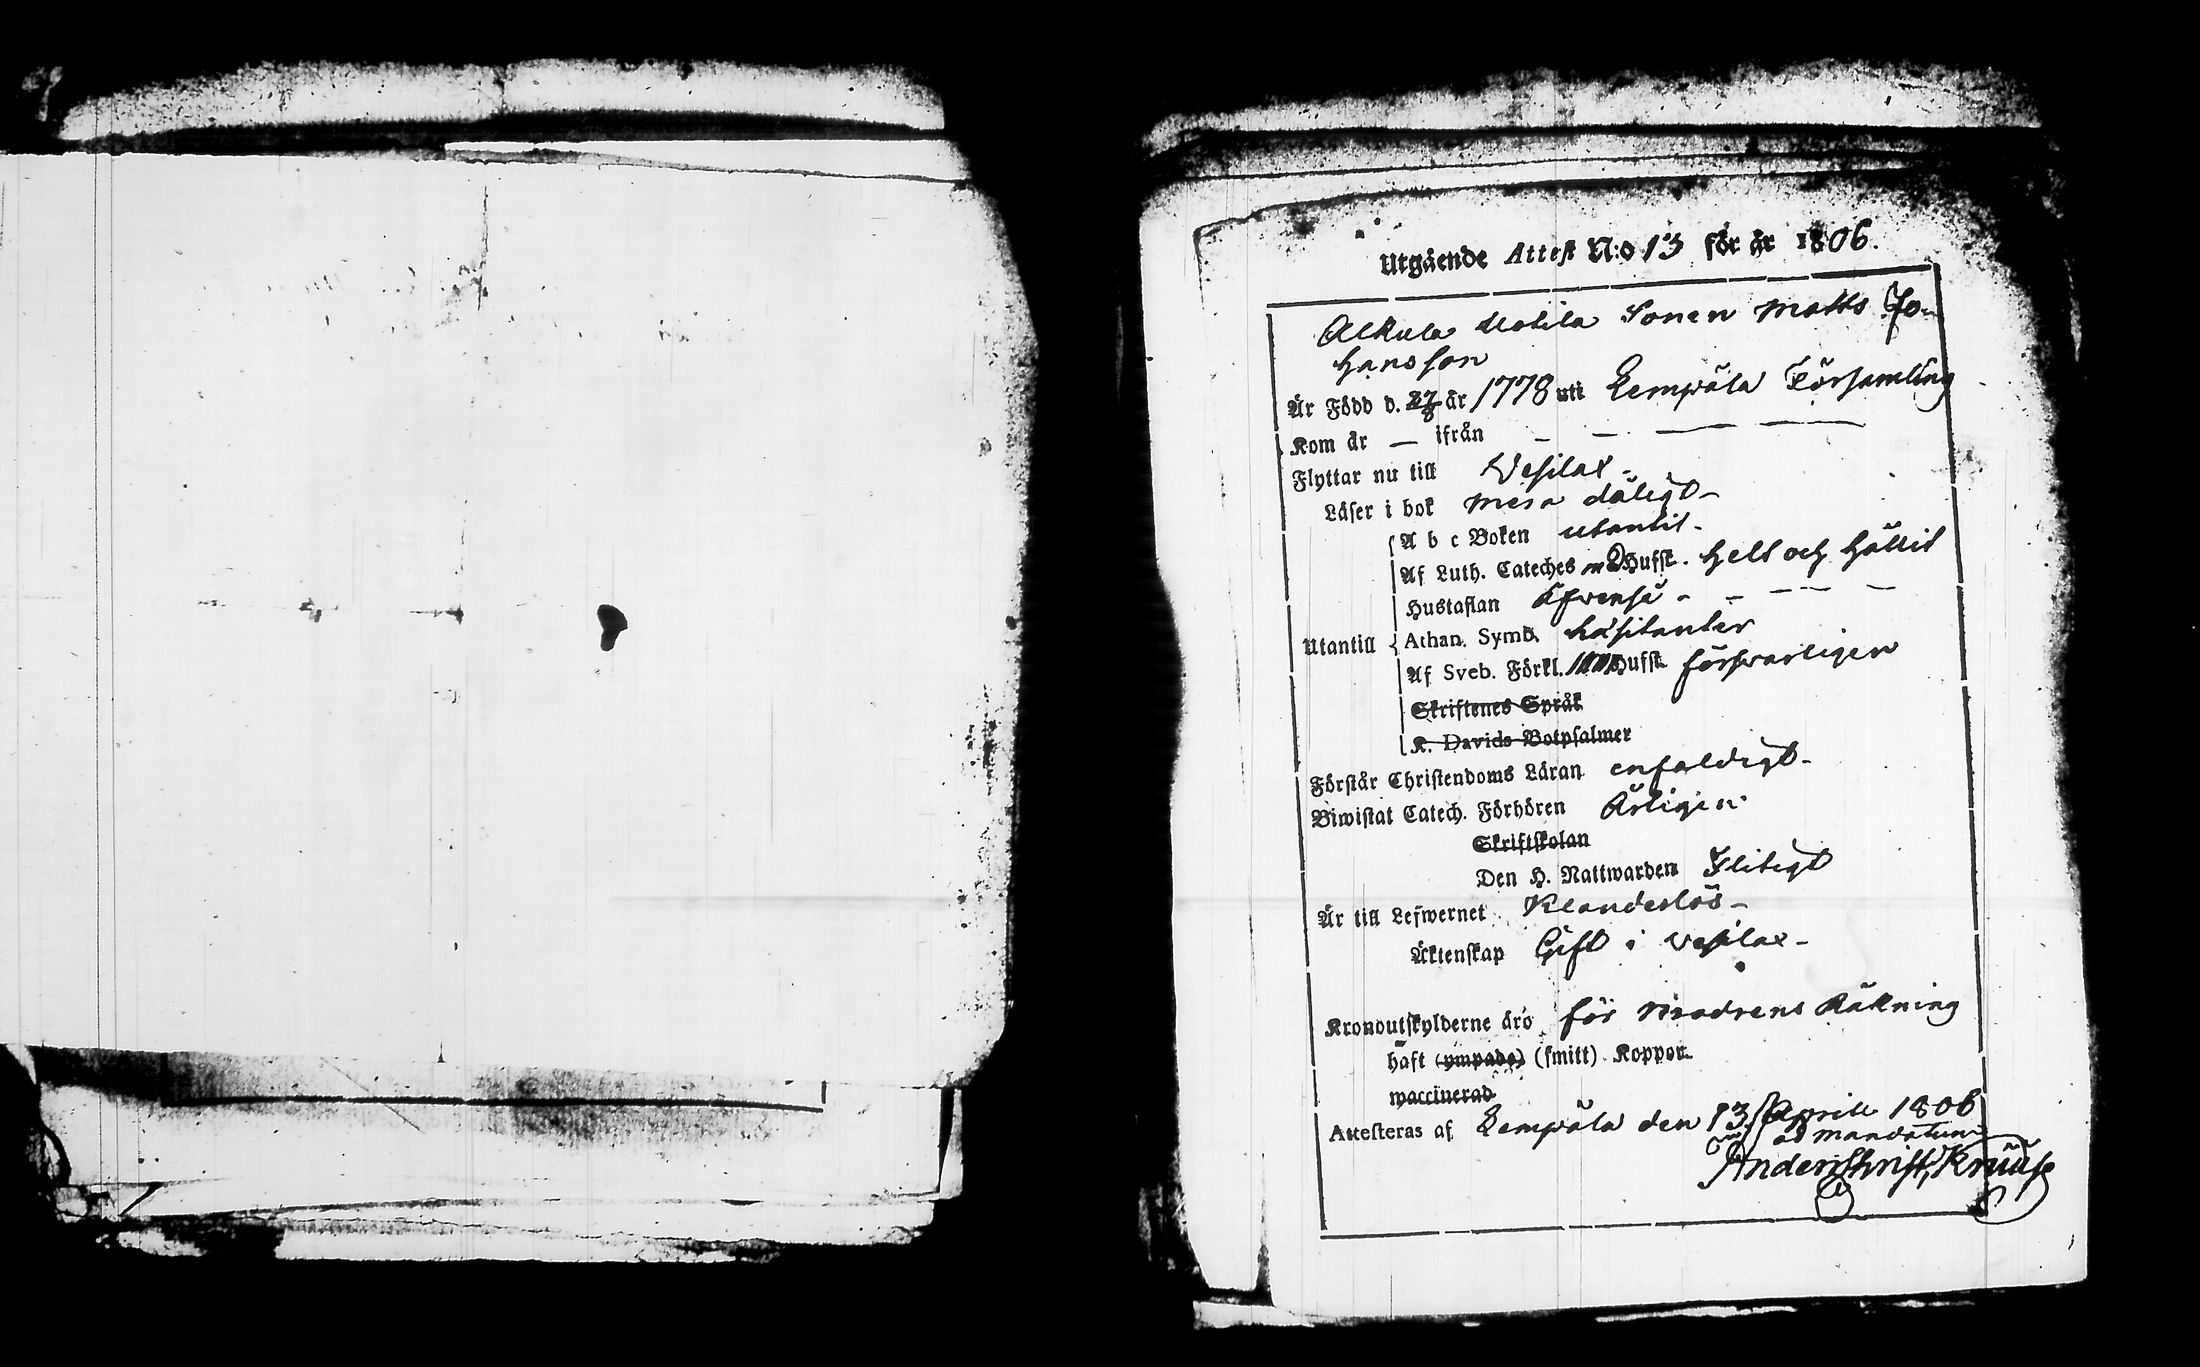 Utgående Attest N:o 13 för år 1806.
Alkula Uotila Sonen Matts Jo-
hansson
Är Född d. 27/8 år 1778 uti Lempäla Församling
Kom år — ifrån — — — —
Flyttar nu till Vesilax -
Läser i bok mera dåligt -
A b c Boken utantil -
Af Luth. Cateches m 2 Hufst. helt och hållit
Hustaflan Äfvense - - — — —
Utantill Athan. Symb. häsitanter
Af Sveb. Förkl. Hufst. försvarligen
Skriftenes Språk
K. Davids Botpsalmer
Förstår Christendoms Läran enfaldigt -
Biwistat Catech. Förhören Årligen
Skriftskolan
Den H. Nattwarden Flitigt
Är till Lefwernet Klanderlös -
Äktenskap Gift i Vesilax -
Kronoutskylderne äro för Modrens Räkning
haft (ympade) (smitt) Koppor.
waccinerad
Attesteras af Lempäla den 13 Aprill 1806
ad mandatum
Krause